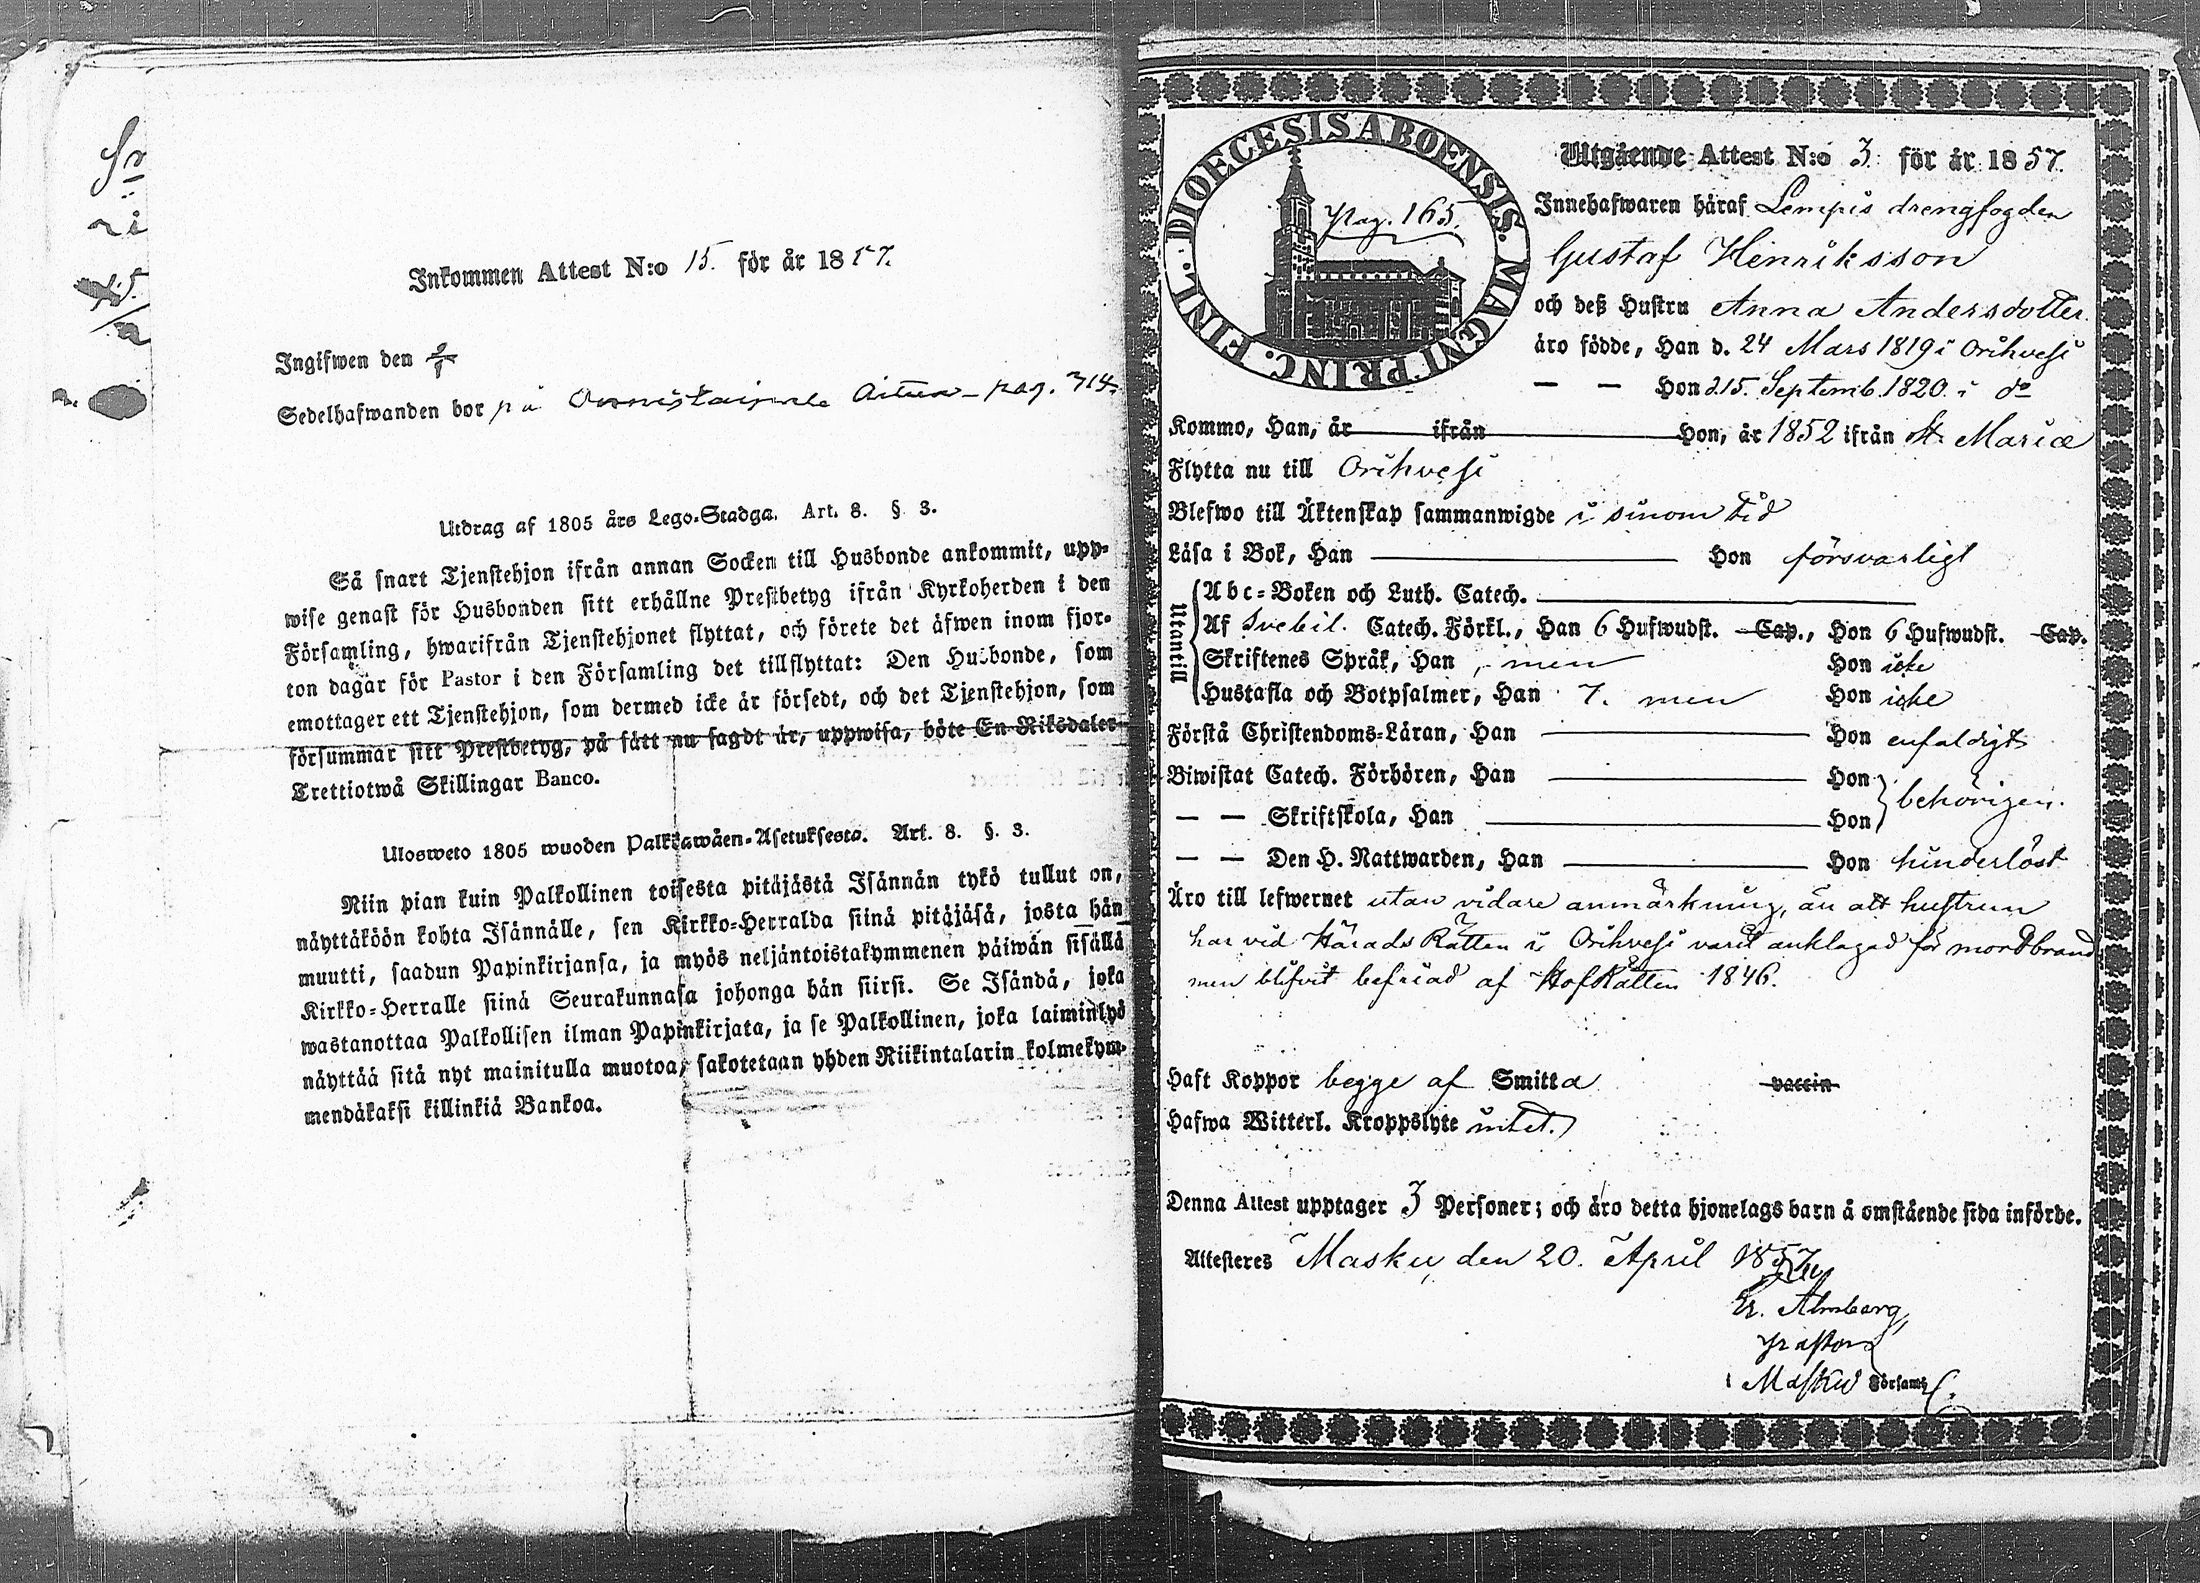 Inkommen Attest N:o 15. för år 1857.
Ingifwen den
Sedelhafwanden bor på pag. 314.
Utdrag af 1805 års Lego-Stadga. Art. 8. § 3.
Så snart Tjenstehjon ifrån annan Socken till Husbonde ankommit, upp-
wise genast för Husbonden sitt erhållne Prestbetyg ifrån Kyrkoherden i den
Församling, hwarifrån Tjenstehjonet flyttat, och förete det äfwen inom fjor-
ton dagar för Pastor i den Församling det tillflyttat: Den Husbonde, som
emottager ett Tjenstehjon, som dermed icke är försedt, och det Tjenstehjon, som
försummar sitt Prestbetyg, på sätt nu sagdt är, uppwisa, böte En Riksdaler
Trettiotwå Skillingar Banco.
Ulosweto 1805 wuoden Palkkawäen-Asetuksesta. Art. 8. §. 3.
Niin pian kuin Palkollinen toisesta pitäjästä Isännän tykö tullut on,
näyttäköön kohta Isännälle, sen Kirkko-Herralda siinä pitäjäsä, josta hän
muutti, saadun Papinkirjansa, ja myös neljäntoistakymmenen päiwän sisällä
Kirkko-Herralle siinä Seurakunnasa johonga hän siirsi. Se Isändä, joka
wastanottaa Palkollisen ilman Papinkirjata, ja se Palkollinen, joka laiminlyö
näyttää sitä nyt mainitulla muotoa, sakotetaan yhden Riikintalarin kolmekym-
mendäkaksi killinkiä Bankoa.
DIOECESIS ABOENSIS. MAGNI PRINC. FINL.
Pag. 165.
Utgående Attest N:o 3. för år 1857.
Innehafwaren häraf Lempis drengfogden
Gustaf Henriksson
och deß Hustru Anna Andersdotter
äro födde, Han d. 24 Mars 1819 i Orihvesi
— — Hon d. 15. Septemb. 1820. i do
Kommo, Han, år ifrån Hon, år 1852 ifrån St. Mariæ
Flytta nu till Orihvesi
Blefwo till Äktenskap sammanwigde i sinom tid
Läsa i Bok, Han Hon försvarligt
Utantill
Abc-Boken och Luth. Catech.
Af Svebil. Catech. Förkl., Han 6 Hufwudst. Cap., Hon 6 Hufwudst. Cap.
Skriftenes Språk, Han men Hon icke
Hustafla och Botpsalmer, Han 7. men Hon icke
Förstå Christendoms-Läran, Han Hon enfaldigt
Biwistat Catech. Förhören, Han Hon behörigen.
— — Skriftskola, Han Hon
— — Den H. Nattwarden, Han Hon hinderlöst
Äro till lefwernet utan vidare anmärkning, än att hustrun
har vid Härads Rätten i Orihvesi varit anklagad för mordbrand
men blifvit befriad af HofRätten 1846.
Haft Koppor begge af Smitta vaccin
Hafwa Witterl. Kroppslyte intet.
Denna Attest upptager 3 Personer; och äro detta hjonelags barn å omstående sida införde.
Attesteres Masku, den 20. April 1857
Er. Almberg,
Pastor
i Masku Församl.